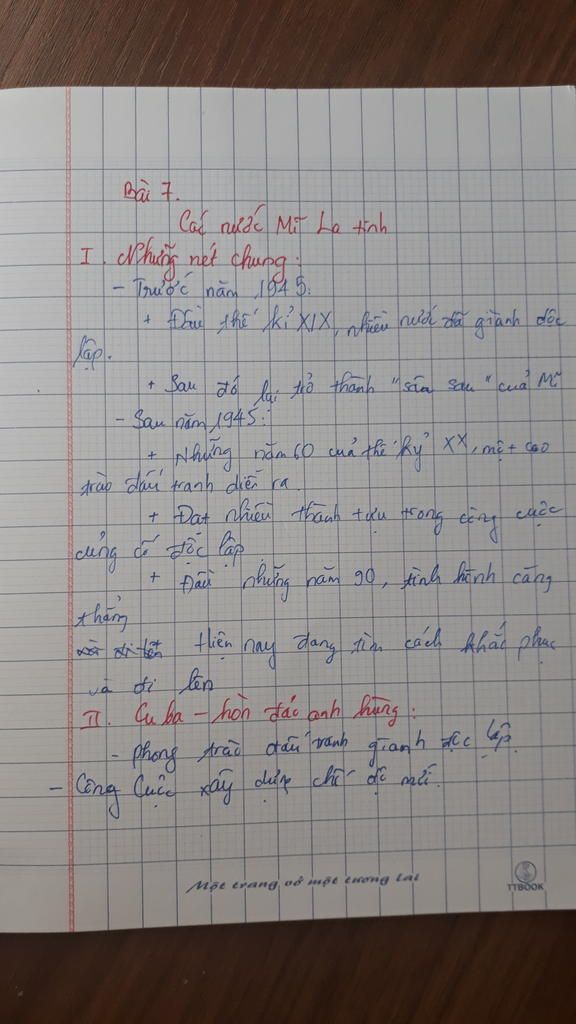 Bài 7.
Các nước Mĩ La tinh
I. Những nét chung:
- Trước năm 1945:
+ Đầu thế kỉ XIX, nhiều nước đã giành độc
lập.
+ Sau đó lại trở thành "sân sau" của Mĩ
- Sau năm 1945:
+ Những năm 60 của thế kỷ XX, một cao
trào đấu tranh diễn ra.
+ Đạt nhiều thành tựu trong công cuộc
củng cố độc lập
+ Đầu những năm 90, tình hình căng
thẳng
Hiện nay đang tìm cách khắc phục
và đi lên
II. Cu ba - hòn đảo anh hùng:
- phong trào đấu tranh giành độc lập
- Công Cuộc xây dựng chế độ mới.
Một trang vở một tương lai
TTBOOK